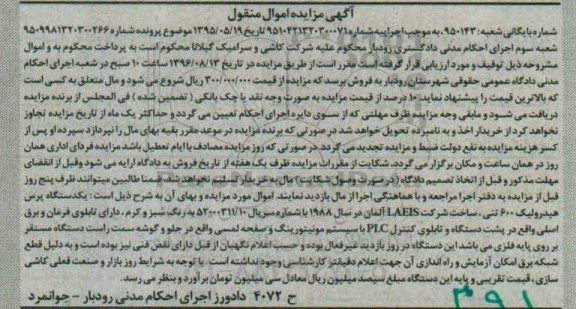 آگهی مزایده اموال منقول
شماره بایگانی شعبه: ۹۵۰۱۴۳، به موجب اجراییه شماره ۹۵۱۰۴۲۱۳۲۰۳۰۰۰۷۱ تاریخ ۱۳۹۵/۰۵/۱۹ موضوع پرونده شماره ۹۵۰۹۹۸۱۳۲۰۳۰۰۲۶۶
شعبه سوم اجرای احکام مدنی دادگستری رودبار محکوم علیه شرکت کاشی و سرامیک گیلانا محکوم است به پرداخت محکوم به و اموال
مشروحه ذیل توقیف و مورد ارزیابی قرار گرفته است مقرر است از طریق مزایده در تاریخ ۱۳۹۶/۰۸/۱۳ ساعت ۱۰ صبح در شعبه اجرای احکام
مدنی دادگاه عمومی حقوقی شهرستان رودبار به فروش برسد که مزایده از قیمت ۳۰۰/۰۰۰/۰۰۰ ریال شروع می شود و مال متعلق به کسی است
که بالاترین قیمت را پیشنهاد نماید: ۱۰ درصد از قیمت مزایده به صورت وجه نقد یا چک بانکی ( تضمین شده ) فی المجلس از برنده مزایده
دریافت می شود و مابقی وجه مزایده ظرف مهلتی که از سوی دایره اجرای احکام تعیین می گردد و حداکثر یک ماه از تاریخ مزایده تجاوز
نخواهد کرد از خریدار اخذ و به نامبرده تحویل خواهد شد در صورتی که برنده مزایده در موعد مقرر بقیه بهای مال را نپردازد سپرده او پس از
کسر هزینه مزایده به نفع دولت ضبط و مزایده تجدید می گردد در صورتی که روز مزایده مصادف با ایام تعطیل باشد مزایده فردای اداری همان
روز در همان ساعت و مکان برگزار می گردد، شکایت از مقررات مزایده ظرف یک هفته از تاریخ فروش به دادگاه ارایه می شود وقبل از انقضای
مهلت مذکور و قبل از اتخاذ تصمیم دادگاه (در صورت وصول شکایت) مال به خریدار تسلیم نخواهد شد ضمنا طالبین میتوانند ظرف پنج روز
قبل از مزایده به دفتر اجرا مراجعه و با هماهنگی اجرا از مال بازدید نمایند. اموال مورد مزایده و بهای آن به شرح ذیل است : یکدستگاه پرس
هیدرولیک ۶۰۰ تنی ، ساخت شرکت LAEIS آلمان در سال ۱۹۸۸ با شماره سریال ۵۲۰۰۰۳۱۱/۱۰ به رنگ سبز و کرم ، دارای تابلوی فرمان و برق
اصلی واقع در پشت دستگاه و تابلوی کنترل PLC با سیستم مونیتورینگ و صفحه لمسی واقع در جلو و گوشه سمت راست دستگاه مستقر
بر روی پایه فلزی می باشد این دستگاه در روز بازدید غیرفعال بوده و حسب اعلام نگهبان از قبل دارای نقص فنی نیز بوده است و به دلیل قطع
شبکه برق امکان آزمایش و راه اندازی آن جهت اعلام دقیقتر کارشناسی وجود نداشته است. با توجه به شرایط روز بازار و صنعت فعلی کاشی
سازی، قیمت تقریبی و پایه این دستگاه مبلغ سیصد میلیون ریال معادل سی میلیون تومان برآورد و بنظر می رسد.
ح ۴۰۷۲ دادورز اجرای احکام مدنی رودبار - جوانمرد